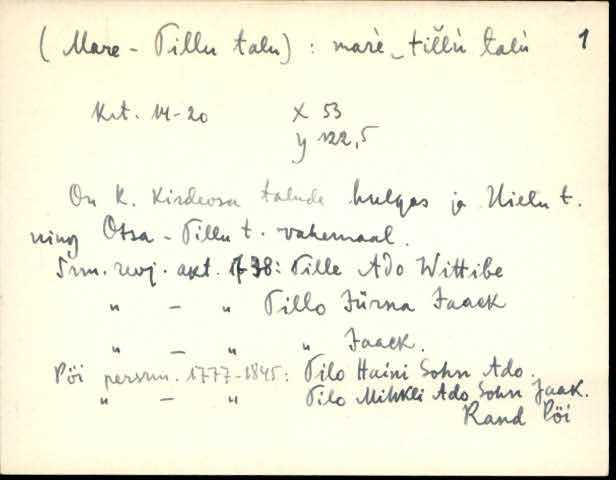 (Mare - Tillu talu) : marè‿tìĺĺù talù 1
Krt. 14-20 X 53
y 122,5
On K. Kirdeosa talude hulgas ja Uielu t.
ning Otsa - Tillu t. vahemaal.
Srm. rev. akt. 1738: Tille Ado Wittibe
" — " Tillo Jürna Jaack
" — " " Jaack.
Pöi persnr. 1777-1845: Tilo Haini Sohn Ado.
" — " Tilo Mihkli Ado Sohn Jaak.
Rand Pöi